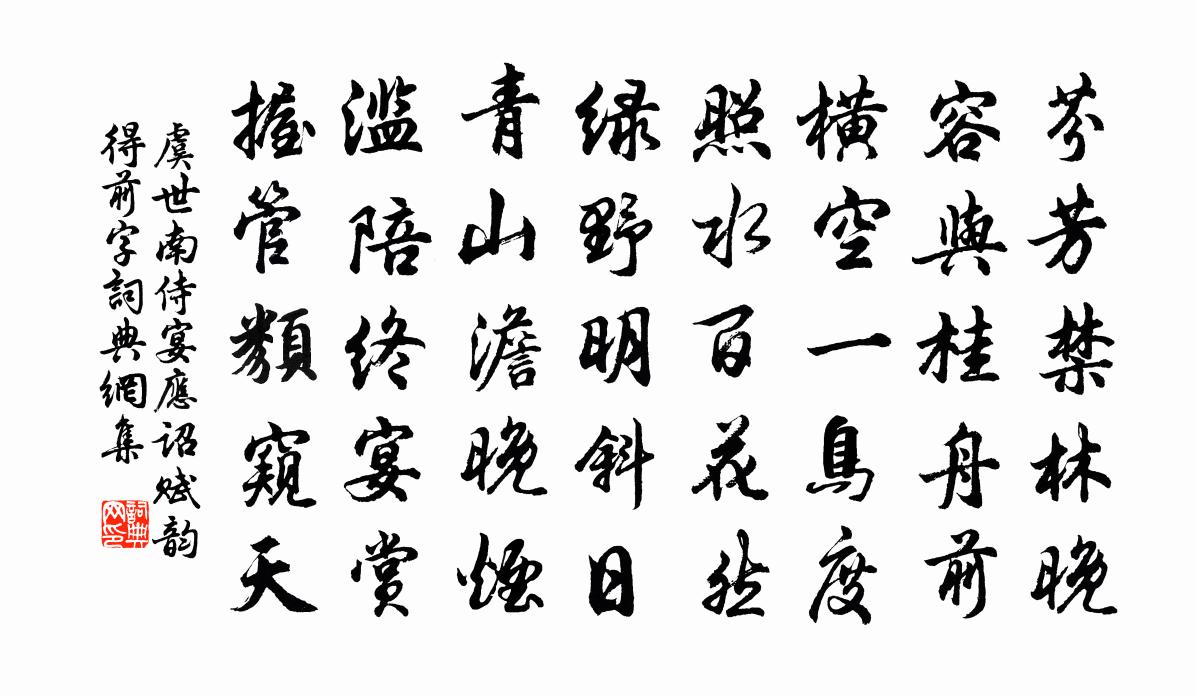 芬芳禁林晚
容與桂舟前
橫空一鳥度
照水百花然
绿野明斜日
青山澹晚煙
滥陪终宴賞
握管類窺天
虞世南侍宴應詔賦韵
得前字詞典網集
詞典
网印